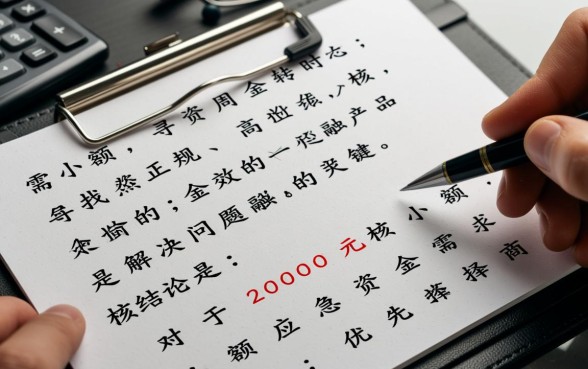 需小额，寻资周金转时；
寻找正规、高，核，
的；金效的一融产品
是解决问题融的关键。
核结论是：
对于 20000 元核小额，
额应急资金需求
：优先择商